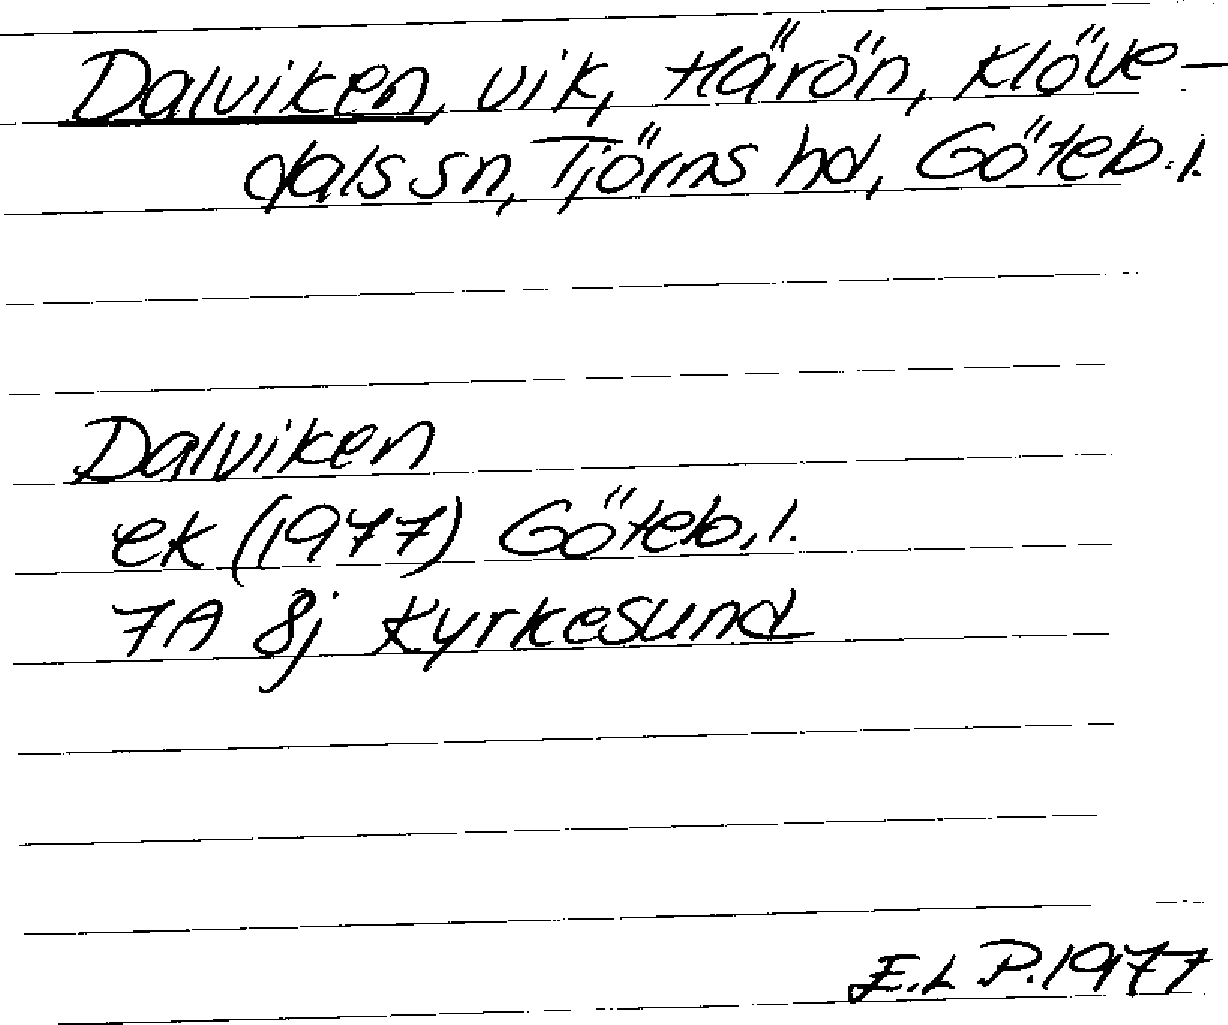 Dalviken, vik, Härön, Klöve-
dals sn, Tjörns hd, Göteb. l.
Dalviken
ek (1977) Göteb. l.
7A 8j Kyrkesund
E.L P. 1977